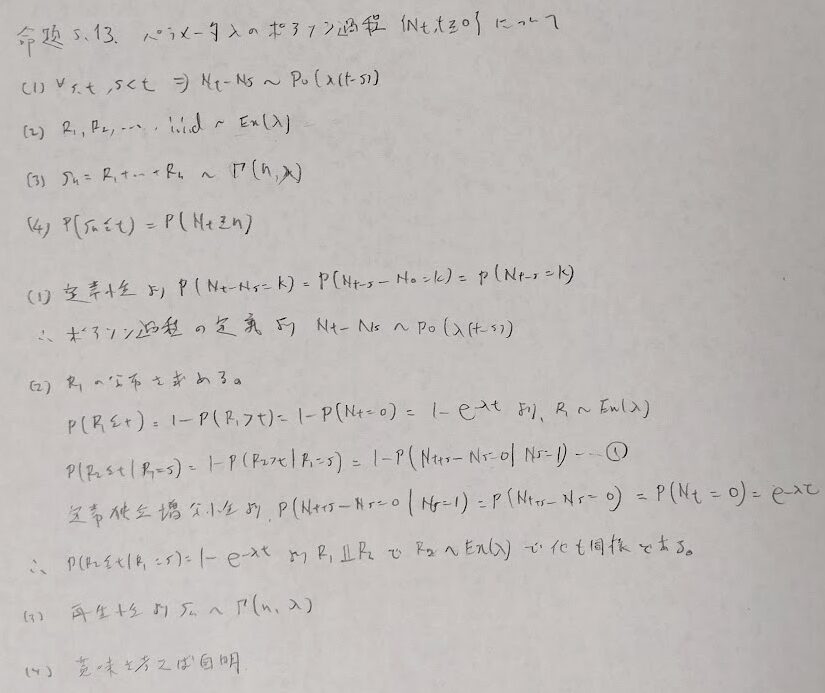 命題5.13. パラメータλのポアソン過程 {Nt, t≧0} について
(1) ∀s,t, s<t ⇒ Nt-Ns ~ Po(λ(t-s))
(2) R1, R2, ... i.i.d ~ Ex(λ)
(3) Sn = R1+…+Rn ~ Γ(n,λ)
(4) P(Sn≦t) = P(Nt≧n)
(1) 定常性より P(Nt-Ns=k) = P(Nt-s-N0=k) = P(Nt-s=k)
∴ ポアソン過程の定義より Nt-Ns ~ Po(λ(t-s))
(2) R1の分布を求める。
P(R1≦t) = 1-P(R1>t) = 1-P(Nt=0) = 1-e^-λt より、R1 ~ Ex(λ)
P(R2≦t|R1=s) = 1-P(R2>t|R1=s) = 1-P(Nt+s-Ns=0|Ns=1) … ①
定常独立増分性より、P(Nt+s-Ns=0|Ns=1) = P(Nt+s-Ns=0) = P(Nt=0) = e^-λt
∴ P(R2≦t|R1=s) = 1-e^-λt より R1⫫R2 で R2 ~ Ex(λ) で他も同様である。
(3) 再生性より Sn ~ Γ(n,λ)
(4) 意味を考えれば自明